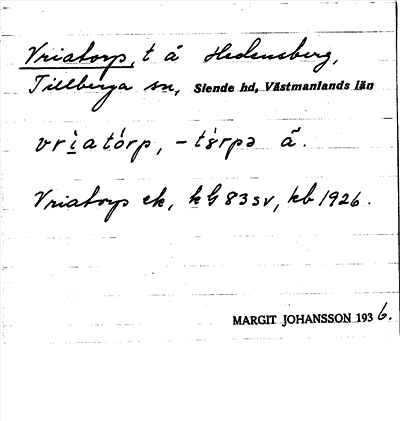 Vriatorp, t å Hedensberg,
Tillberga sn, Siende hd, Västmanlands län
vrìatórp, -tórpə ä̃.
Vriatorp ek, kG 83 sv, kb 1926.
MARGIT JOHANSSON 1936.